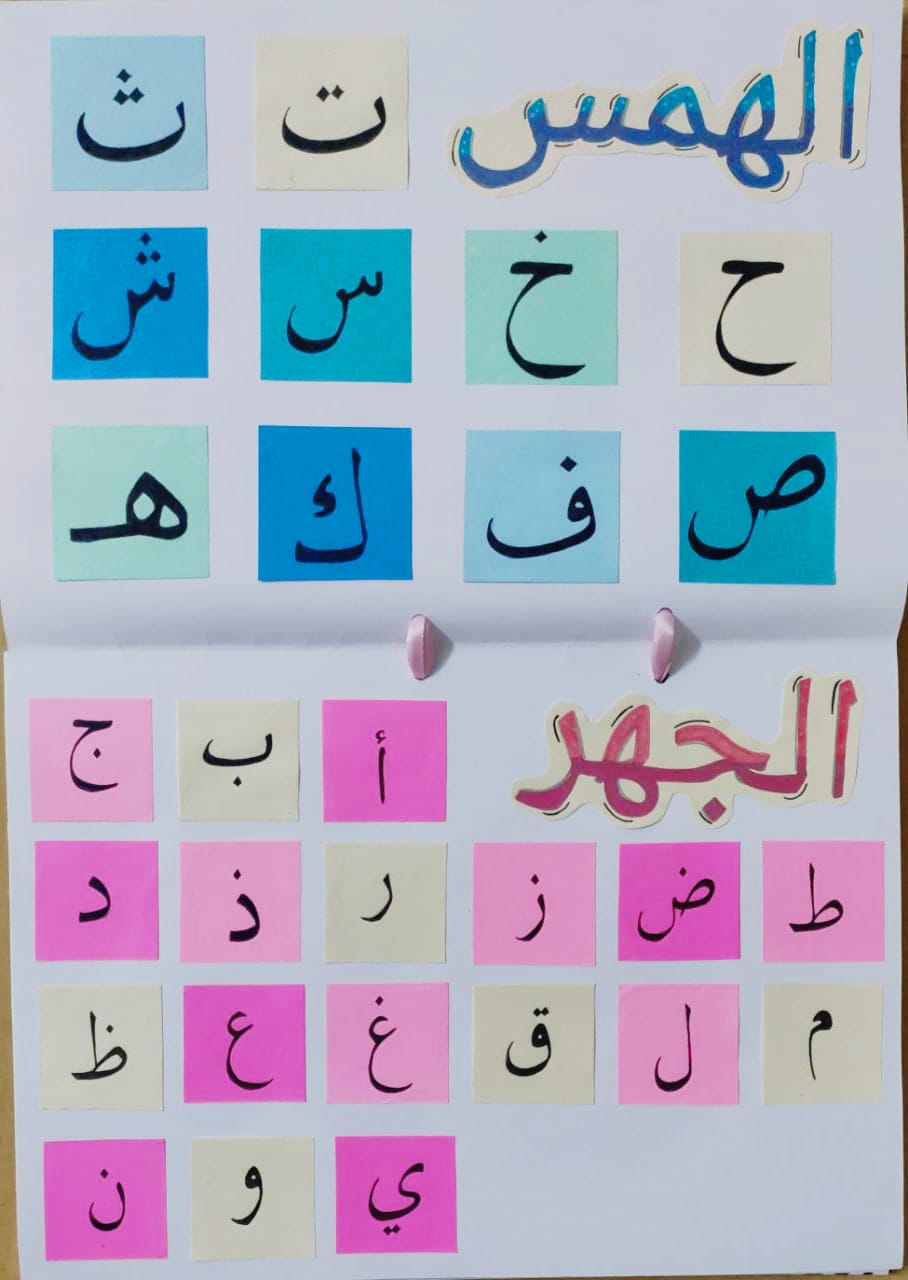 الهمس ت ث
ح خ س ش
ص ف ك هـ
الجهر أ ب ج
ط ض ز ر ذ د
م ل ق غ ع ظ
ي و ن